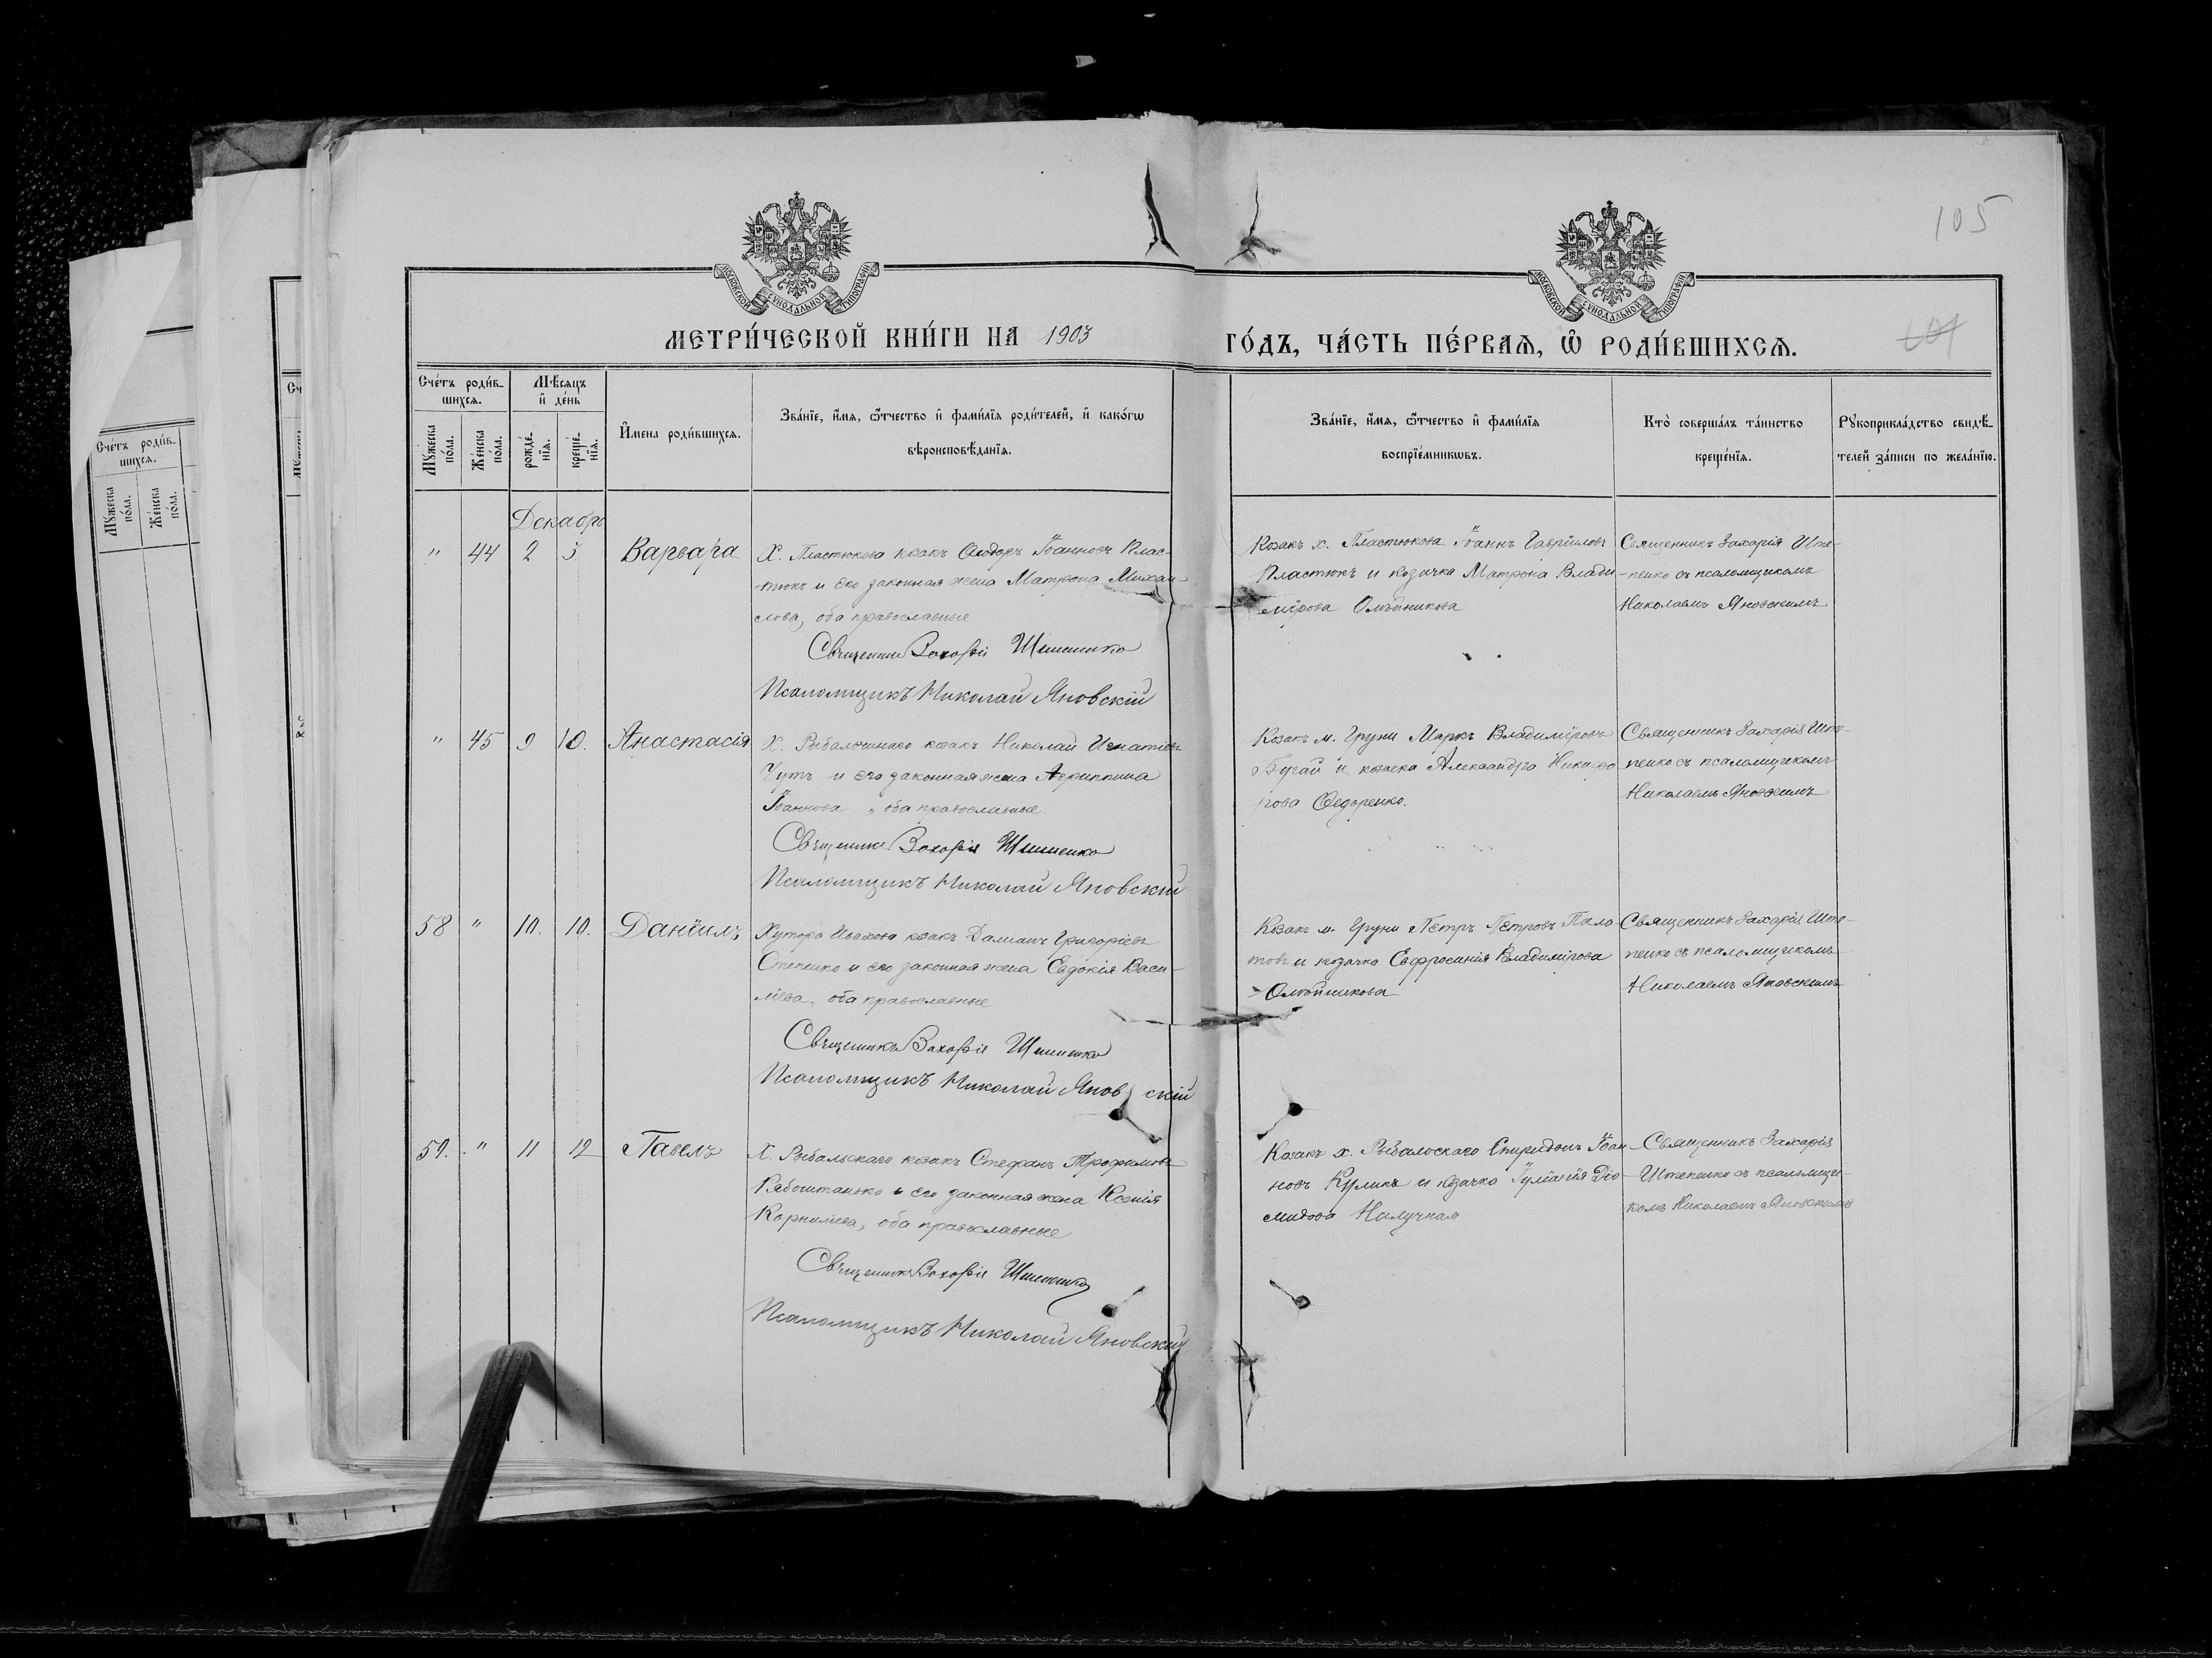 105
МОСКОВСКОЙ СѴНОДАЛЬНОЙ ТИПОГРАФІИ
МОСКОВСКОЙ СѴНОДАЛЬНОЙ ТИПОГРАФІИ
МЕТРИ́ЧЕСКОЙ КНИ́ГИ НА 1903
ГО́ДЪ, ЧА́СТЬ ПЕ́РВАѦ, Ѡ҆ РОДИ́ВШИХСѦ.
Сче́тъ роди́в-
шихсѧ.
Мѣ́сѧцъ
и҆ де́нь
Мꙋ́жеска
по́ла.
Же́нска
по́ла.
рожде́-
нїѧ.
креще́-
нїѧ.
И҆мена роди́вшихсѧ.
Зва́нїе, и҆́мѧ, ѻ҆́тчество и҆ фами́лїѧ роди́телей, и҆ како́гѡ
вѣроисповѣ́данїѧ.
Зва́нїе, и҆́мѧ, ѻ҆́тчество и҆ фами́лїѧ
воспрїе́мникѡвъ.
Кто̀ соверша́лъ та́инство
креще́нїѧ.
Рꙋкоприкла́дство свидѣ́-
телей за́писи по жела́нїю.
Сче́тъ роди́в-
шихсѧ.
Мꙋ́жеска
по́ла.
Же́нска
по́ла.
Декабрь
" 44 2 5 Варвара
Х. Пластюкова козакъ Ѳеодоръ Іоанновъ Плас-
тюкъ и его законная жена Матрона Михаи-
лова, оба православные
Священникъ Захарія Штепенко
Псаломщикъ Николай Яновскій
Козакъ х. Пластюкова Іоаннъ Гавріиловъ
Пластюкъ и козачка Матрона Влади-
мірова Олѣйникова
Священникъ Захарія Ште-
пенко съ псаломщикомъ
Николаемъ Яновскимъ
" 45 9 10. Анастасія
Х. козакъ Николай Игнатіевъ
Чутъ и его законная жена Агриппина
Іоаннова, оба православные.
Священникъ Захарія Штепенко
Псаломщикъ Николай Яновскій
Козакъ м. Груни Маркъ Владиміровъ
Бугай и козачка Александра Никифо-
рова Федоренко.
Священникъ Захарія Ште-
пенко съ псаломщикомъ
Николаемъ Яновскимъ
58 " 10. 10. Даніилъ
Хутора козакъ Даміанъ Григоріевъ
Степенко и его законная жена Евдокія Васи-
ліева, оба православные
Священникъ Захарія Штепенко
Псаломщикъ Николай Яновскій
Козакъ м. Груни Петръ Петровъ
и козачка Евфросинія Владимірова
Олѣйникова
Священникъ Захарія Ште-
пенко съ псаломщикомъ
Николаемъ Яновскимъ
59. " 11 12 Павелъ
Х. Рыбальскаго козакъ Стефанъ Трофимовъ
Рябоштанько и его законная жена Ксенія
Корниліева, оба православные
Священникъ Захарія Штепенко
Псаломщикъ Николай Яновскій
Козакъ х. Рыбальскаго Спиридонъ Іоан-
новъ Куликъ и козачка Іуліанія Діо-
мидова
Священникъ Захарія
Штепенко съ псаломщи-
комъ Николаемъ Яновскимъ